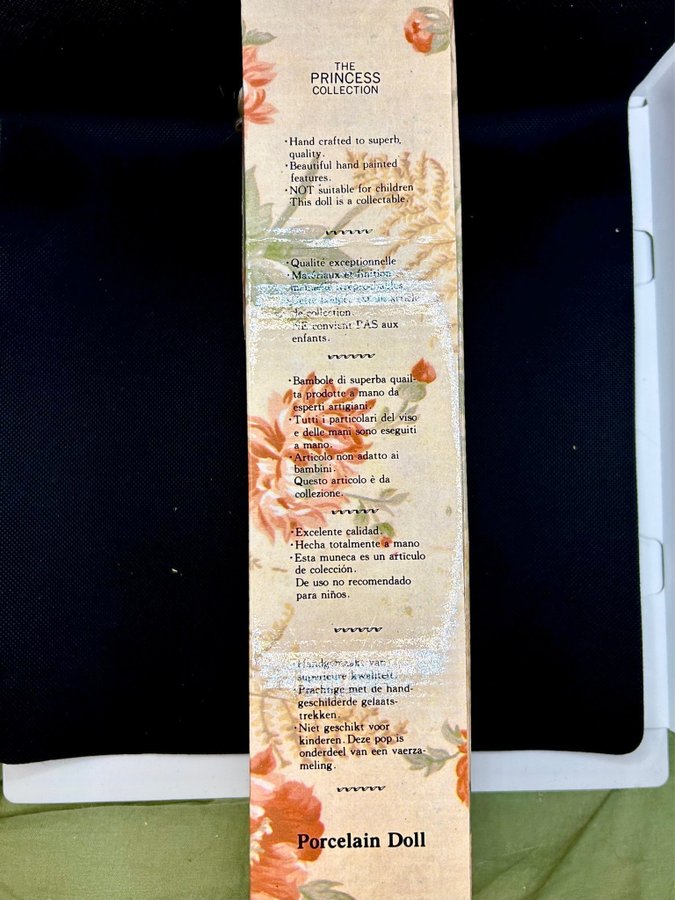 THE
PRINCESS
COLLECTION
·Hand crafted to superb,
quality.
·Beautiful hand painted
features.
·NOT suitable for children
This doll is a collectable.
·Qualité exceptionnelle
·Matériaux et finition
irréprochables
article
de collection.
NE convient PAS aux
enfants.
·Bambole di superba quail-
ta prodotte a mano da
esperti artigiani.
·Tutti i particolari del viso
e delle mani sono eseguiti
a mano.
·Articolo non adatto ai
bambini.
Questo articolo è da
collezione.
·Excelente calidad.
·Hecha totalmente a mano
·Esta muneca es un articulo
de colección.
De uso no recomendado
para niños.
·Handgemaakt van
superieure kwaliteit.
·Prachtige met de hand-
geschilderde gelaats-
trekken.
·Niet geschikt voor
kinderen. Deze pop is
onderdeel van een vaerza-
meling.
Porcelain Doll